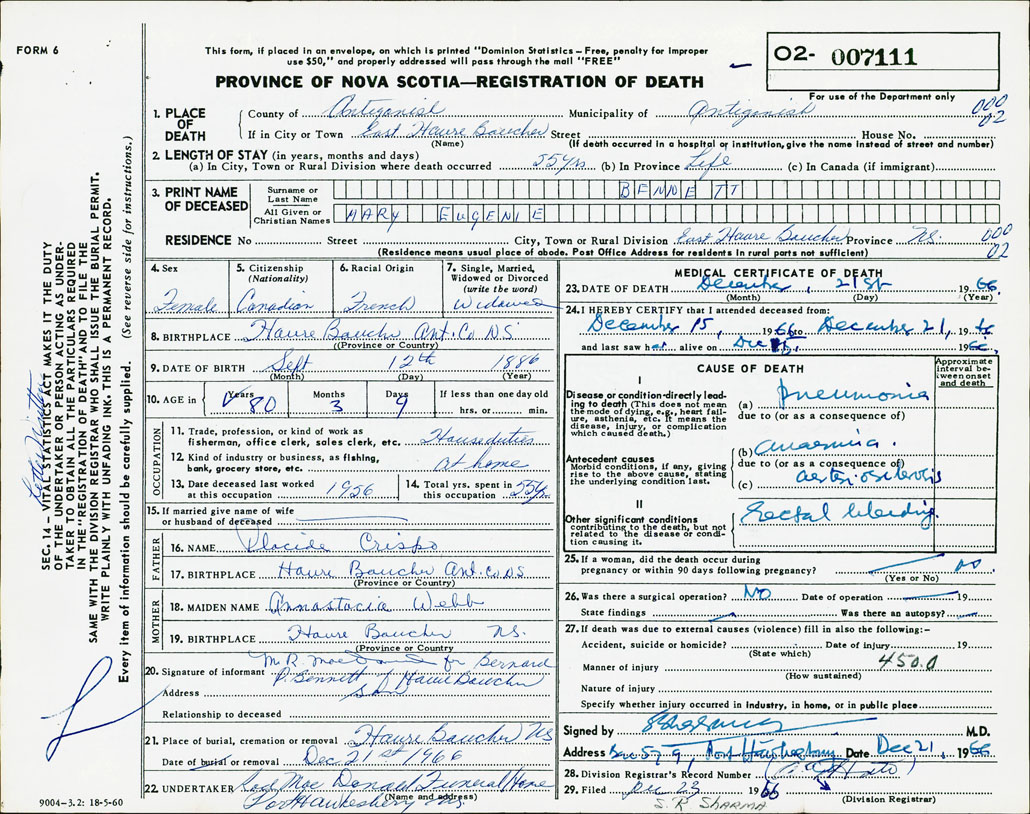 FORM 6
This form, if placed in an envelope, on which is printed "Dominion Statistics – Free, penalty for improper
use $50," and properly addressed will pass through the mail "FREE"
PROVINCE OF NOVA SCOTIA—REGISTRATION OF DEATH
02- 007111
For use of the Department only
1. PLACE OF DEATH County of Antigonish Municipality of Antigonish 000 02
If in City or Town East Havre Boucher Street House No.
(Name) (If death occurred in a hospital or institution, give the name instead of street and number)
2. LENGTH OF STAY (in years, months and days)
(a) In City, Town or Rural Division where death occurred 55 yrs (b) In Province Life (c) In Canada (if immigrant)
3. PRINT NAME OF DECEASED Surname or Last Name BENNETT
All Given or Christian Names MARY EUGENIE
RESIDENCE No Street City, Town or Rural Division East Havre Boucher Province N.S. 000 02
(Residence means usual place of abode. Post Office Address for residents in rural parts not sufficient)
4. Sex Female
5. Citizenship (Nationality) Canadian
6. Racial Origin French
7. Single, Married, Widowed or Divorced (write the word) Widowed
8. BIRTHPLACE Havre Boucher Ant. Co NS
(Province or Country)
9. DATE OF BIRTH Sept 12th 1886
(Month) (Day) (Year)
10. AGE in Years 80 Months 3 Days 9 If less than one day old hrs. or min.
OCCUPATION
11. Trade, profession, or kind of work as
fisherman, office clerk, sales clerk, etc. House duties
12. Kind of industry or business, as fishing,
bank, grocery store, etc. at home
13. Date deceased last worked at this occupation 1956
14. Total yrs. spent in this occupation 55 y.
15. If married give name of wife
or husband of deceased
FATHER
16. NAME Placide Crispo
17. BIRTHPLACE Havre Boucher Ant. Co NS
(Province or Country)
MOTHER
18. MAIDEN NAME Annastacia Webb
19. BIRTHPLACE Havre Boucher NS.
(Province or Country)
20. Signature of informant M. R. for Bernard
P. Bennett of Havre Boucher
Address
Relationship to deceased
21. Place of burial, cremation or removal Havre Boucher NS
Date of burial or removal Dec 21st 1966
22. UNDERTAKER Mac Donald Funeral Home
(Name and address)
Port Hawkesbury NS.
9004–3.2: 18-5-60
MEDICAL CERTIFICATE OF DEATH
23. DATE OF DEATH December, 21st 1966
(Month) (Day) (Year)
24. I HEREBY CERTIFY that I attended deceased from:
December 15, 1966 to December 21, 1966
and last saw her alive on Dec 1966.
CAUSE OF DEATH
Approximate interval between onset and death
I
Disease or condition directly leading to death (This does not mean the mode of dying, e.g., heart failure, asthenia, etc. It means the disease, injury, or complication which caused death.)
(a) Pneumonia
due to (or as a consequence of)
Antecedent causes
Morbid conditions, if any, giving rise to the above cause, stating the underlying condition last.
(b) Anaemia.
due to (or as a consequence of)
(c) arteriosclerosis
II
Other significant conditions
contributing to the death, but not related to the disease or condition causing it.
Rectal bleeding.
25. If a woman, did the death occur during
pregnancy or within 90 days following pregnancy? No.
(Yes or No)
26. Was there a surgical operation? NO Date of operation 19
State findings Was there an autopsy?
27. If death was due to external causes (violence) fill in also the following:–
Accident, suicide or homicide? Date of injury 19
(State which)
Manner of injury 450.0
(How sustained)
Nature of injury
Specify whether injury occurred in industry, in home, or in public place
Signed by M.D.
Address Box 579, Port Hawkesbury Date Dec 21, 1966
28. Division Registrar's Record Number
29. Filed Dec 23 1966
(Division Registrar)
S. R SHARMA
SEC. 14 – VITAL STATISTICS ACT MAKES IT THE DUTY
OF THE UNDERTAKER OR PERSON ACTING AS UNDER-
TAKER TO OBTAIN ALL THE PARTICULARS REQUIRED
IN THE "REGISTRATION OF DEATH" AND TO FILE THE
SAME WITH THE DIVISION REGISTRAR WHO SHALL ISSUE THE BURIAL PERMIT.
WRITE PLAINLY WITH UNFADING INK. THIS IS A PERMANENT RECORD.
Every item of information should be carefully supplied. (See reverse side for instructions.)